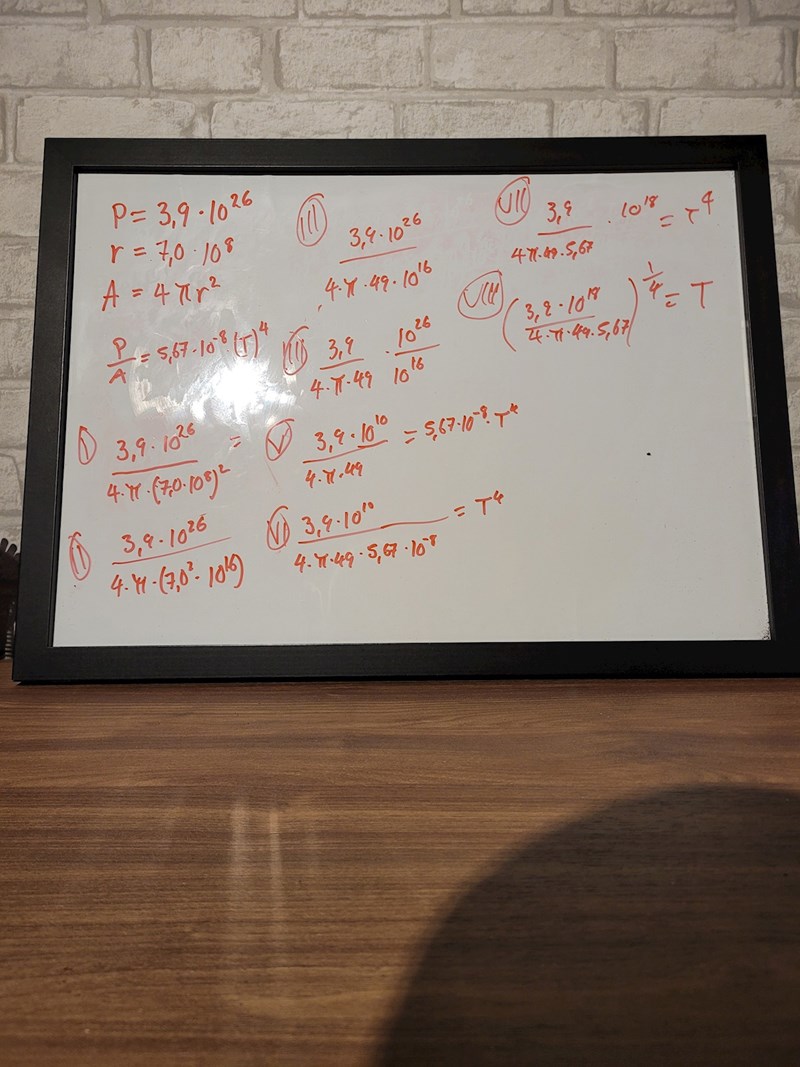 P = 3,9 · 10²⁶
r = 7,0 · 10⁸
A = 4 π r²
P/A = 5,67 · 10⁻⁸ · (T)⁴
I 3,9 · 10²⁶ / 4 · π · (7,0 · 10⁸)² =
II 3,9 · 10²⁶ / 4 · π · (7,0² · 10¹⁶)
III 3,9 · 10²⁶ / 4 · π · 49 · 10¹⁶
IIII 3,9 / 4 · π · 49 · 10²⁶ / 10¹⁶
V 3,9 · 10¹⁰ / 4 · π · 49 = 5,67 · 10⁻⁸ · T⁴
VI 3,9 · 10¹⁰ / 4 · π · 49 · 5,67 · 10⁻⁸ = T⁴
VII 3,9 / 4π · 49 · 5,67 · 10¹⁸ = T⁴
VIII (3,9 · 10¹⁸ / 4 · π · 49 · 5,67)^1/4 = T